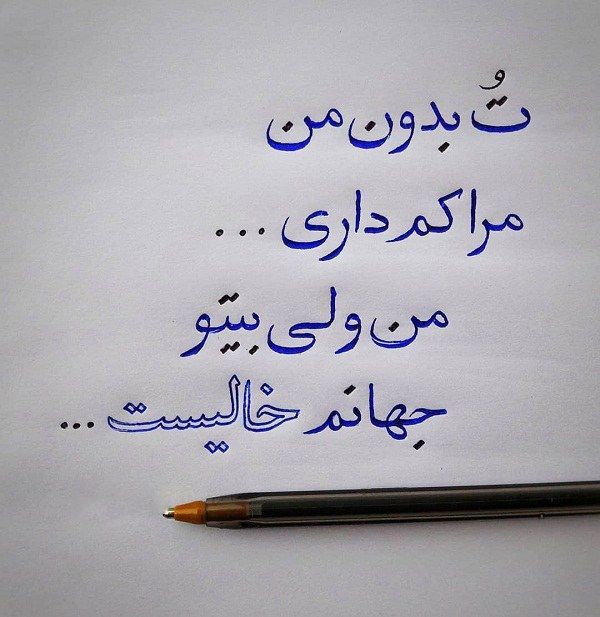 تُو بدون من
مرا کم داری ...
من ولی بیتو
جهانم خالیست ...